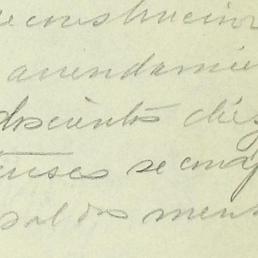 e construccion
arrendamie
doscientos diez
enses se comp
sol dos mens